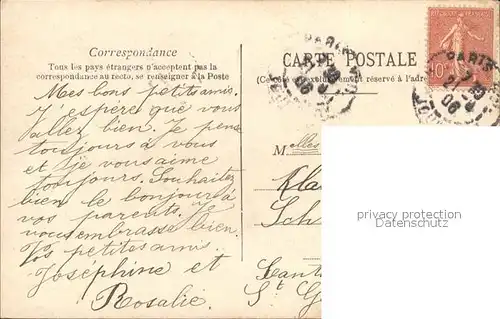 Correspondance
Tous les pays étrangers n'acceptent pas la
correspondance au recto, se renseigner à la Poste
Mes bons petits amis.
J'espère que vous
allez bien. Je pense
toujours à vous
et je vous aime
toujours. Souhaitez
bien le bonjour à
vos parents. Je
vous embrasse bien.
Vos petites amis.
Joséphine et
Rosalie.
CARTE POSTALE
Ce côté est exclusivement réservé à l'adre
PARIS
06
PARIS
06
10
Melles
Kla
Sch
Cant
St G
privacy protection
Datenschutz